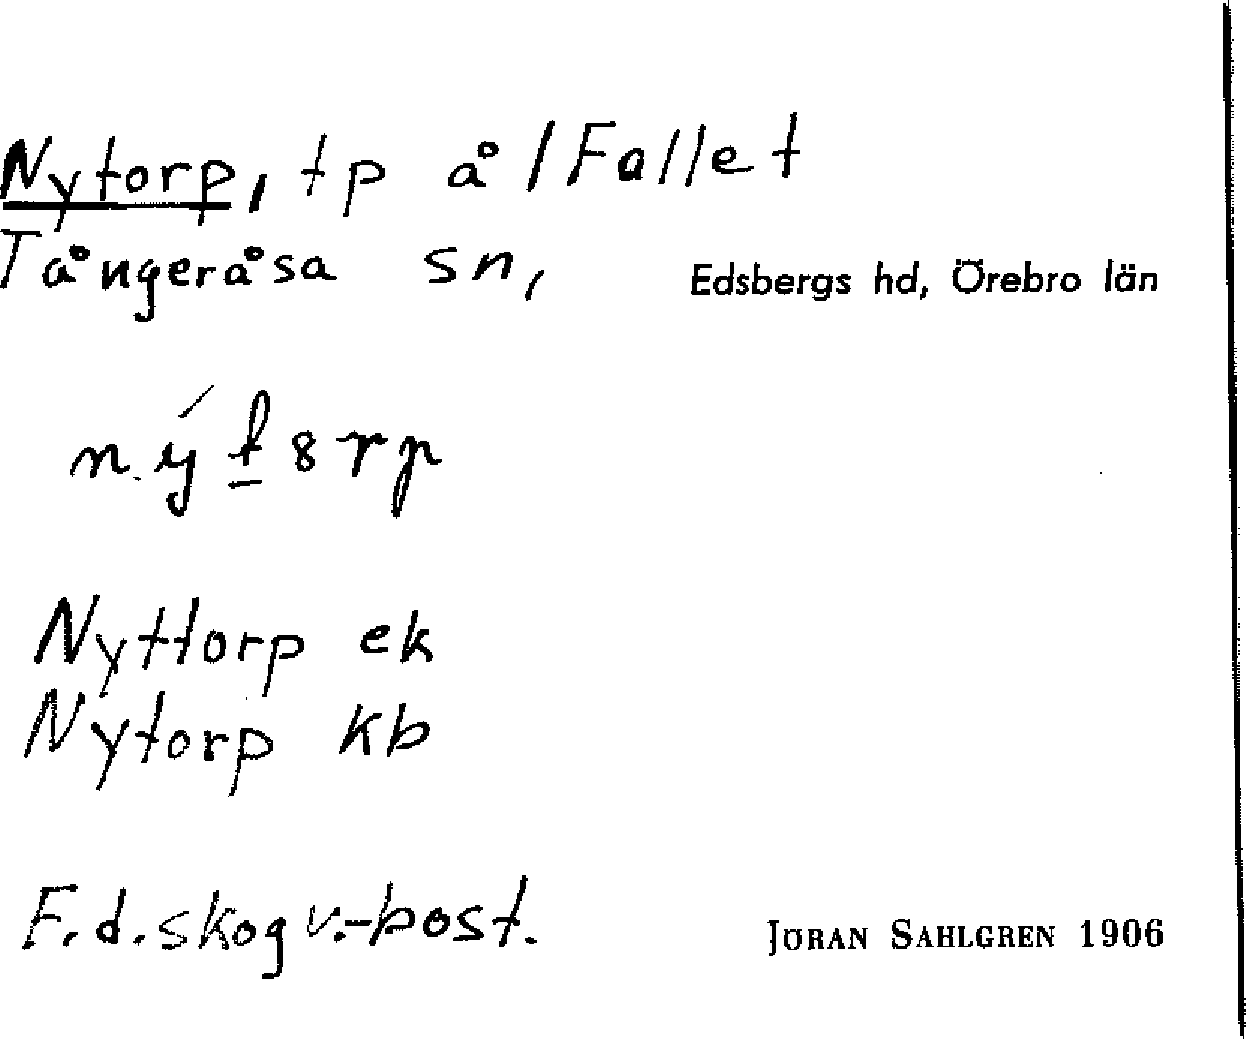 Nytorp, tp å /Fallet
Tångeråsa sn, Edsbergs hd, Örebro län
Nyttorp ek
Nytorp kb
F.d. skogv.-bost.
JÖRAN SAHLGREN 1906